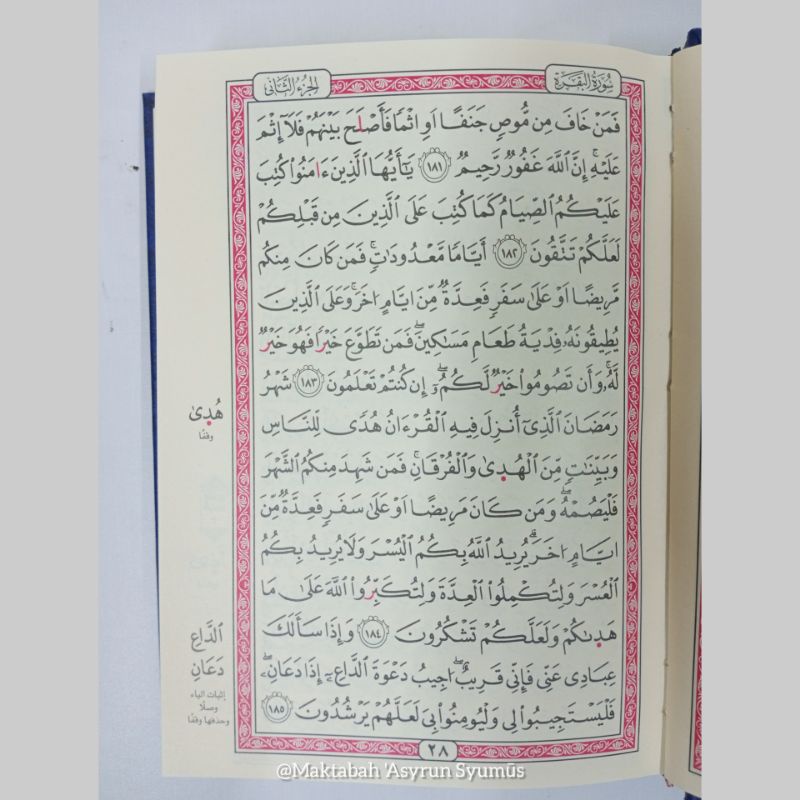 سُورَةُ البَقَرَةِ
الجُزءُ الثَّانِي
فَمَنْ خَافَ مِن مُّوصٖ جَنَفًا اَوِ اِثْمًا فَأَصْلَحَ بَيْنَهُمْ فَلَآ إِثْمَ
عَلَيْهِۚ إِنَّ اَ۬للَّهَ غَفُورٞ رَّحِيمٞ ١٨١ يَٰٓأَيُّهَا اَ۬لذِينَ ءَامَنُواْ كُتِبَ
عَلَيْكُمُ اُ۬لصِّيَامُ كَمَا كُتِبَ عَلَى اَ۬لذِينَ مِن قَبْلِكُمْ
لَعَلَّكُمْ تَتَّقُونَ ١٨٢ أَيَّامٗا مَّعْدُودَٰتٖۚ فَمَن كَانَ مِنكُم
مَّرِيضًا اَوْ عَلَىٰ سَفَرٖ فَعِدَّةٞ مِّنَ اَيَّامٍ اُخَرَۚ وَعَلَى اَ۬لذِينَ
يُطِيقُونَهُۥ فِدْيَةُ طَعَامِ مَسَٰكِينَۖ فَمَن تَطَوَّعَ خَيْرٗا فَهُوَ خَيْرٞ
لَّهُۥۚ وَأَن تَصُومُواْ خَيْرٞ لَّكُمُۥٓۖ إِن كُنتُمْ تَعْلَمُونَ ١٨٣ شَهْرُ
رَمَضَانَ اَ۬لذِيٓ أُنزِلَ فِيهِ اِ۬لْقُرْءَانُ هُدٗى لِّلنَّاسِ
وَبَيِّنَٰتٖ مِّنَ اَ۬لْهُدىٰ وَالْفُرْقَانِۚ فَمَن شَهِدَ مِنكُمُ اُ۬لشَّهْرَ
فَلْيَصُمْهُۖ وَمَن كَانَ مَرِيضًا اَوْ عَلَىٰ سَفَرٖ فَعِدَّةٞ مِّنَ
اَيَّامٍ اُخَرَۗ يُرِيدُ اُ۬للَّهُ بِكُمُ اُ۬لْيُسْرَ وَلَا يُرِيدُ بِكُمُ
اُ۬لْعُسْرَ وَلِتُكْمِلُواْ اُ۬لْعِدَّةَ وَلِتُكَبِّرُواْ اُ۬للَّهَ عَلَىٰ مَا
هَدىٰكُمْ وَلَعَلَّكُمْ تَشْكُرُونَ ١٨٤ وَإِذَا سَأَلَكَ
عِبَادِي عَنِّي فَإِنِّي قَرِيبٌۖ اُجِيبُ دَعْوَةَ اَ۬لدَّاعِۦٓ إِذَا دَعَانِۦۖ
فَلْيَسْتَجِيبُواْ لِي وَلْيُومِنُواْ بِي لَعَلَّهُمْ يَرْشُدُونَ ١٨٥
هُدىٰ
وقفًا
اَ۬لدَّاعِ
دَعَانِ
إثبات الياء
وصلًا
وحذفها وقفًا
٢٨
@Maktabah 'Asyrun Syumūs